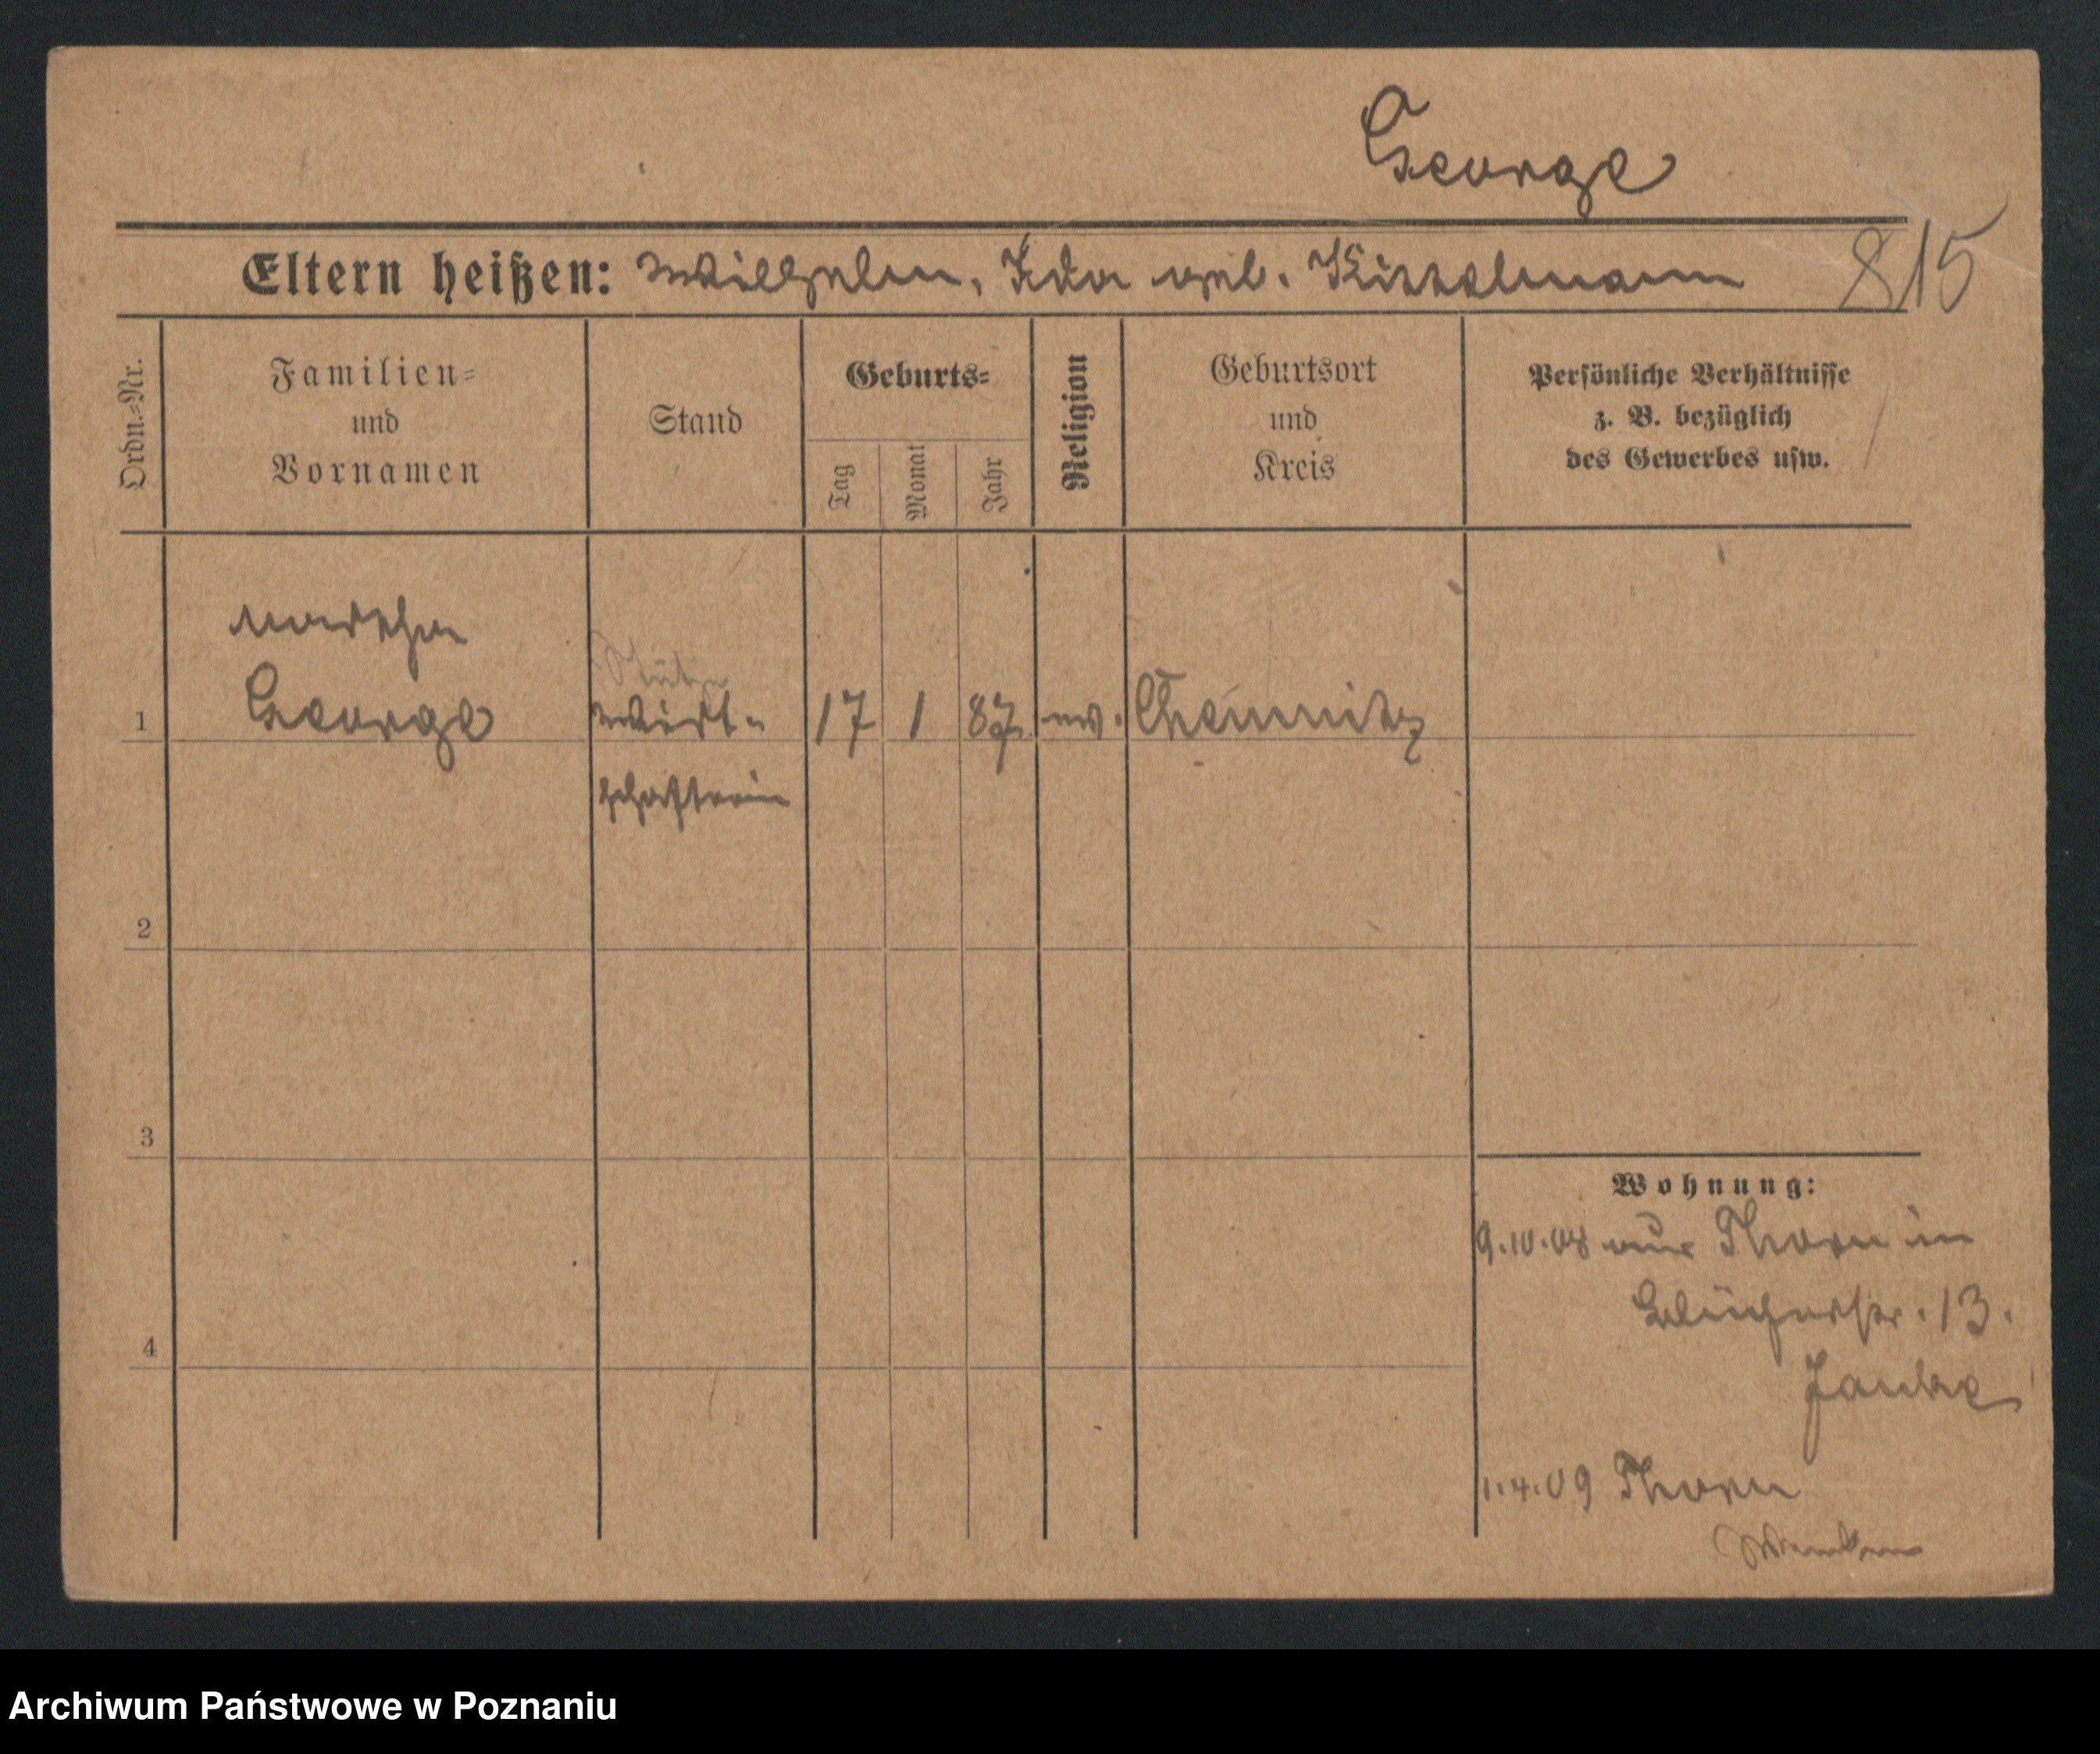 George
Eltern heißen: Wilhelm, Ida geb. Kittelmann 815
Ordn.=Nr.
Familien=
und
Vornamen
Stand
Geburts=
Tag
Monat
Jahr
Religion
Geburtsort
und
Kreis
Persönliche Verhältnisse
z. B. bezüglich
des Gewerbes usw.
Martha
Stütze
1 George Wirt- 17 1 87 ev. Chemnitz
schafterin
2
3
4
Wohnung:
9.10.08 aus Thorn in
Blücherstr. 13.
1.4.09 Thorn
Archiwum Państwowe w Poznaniu